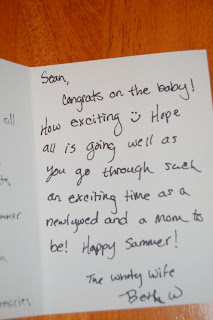 Sean,
Congrats on the baby!
How exciting ☺ Hope
all is going well as
you go through such
an exciting time as a
newlywed and a mom to
be! Happy Summer!
The Wif
Beth W
all
memories